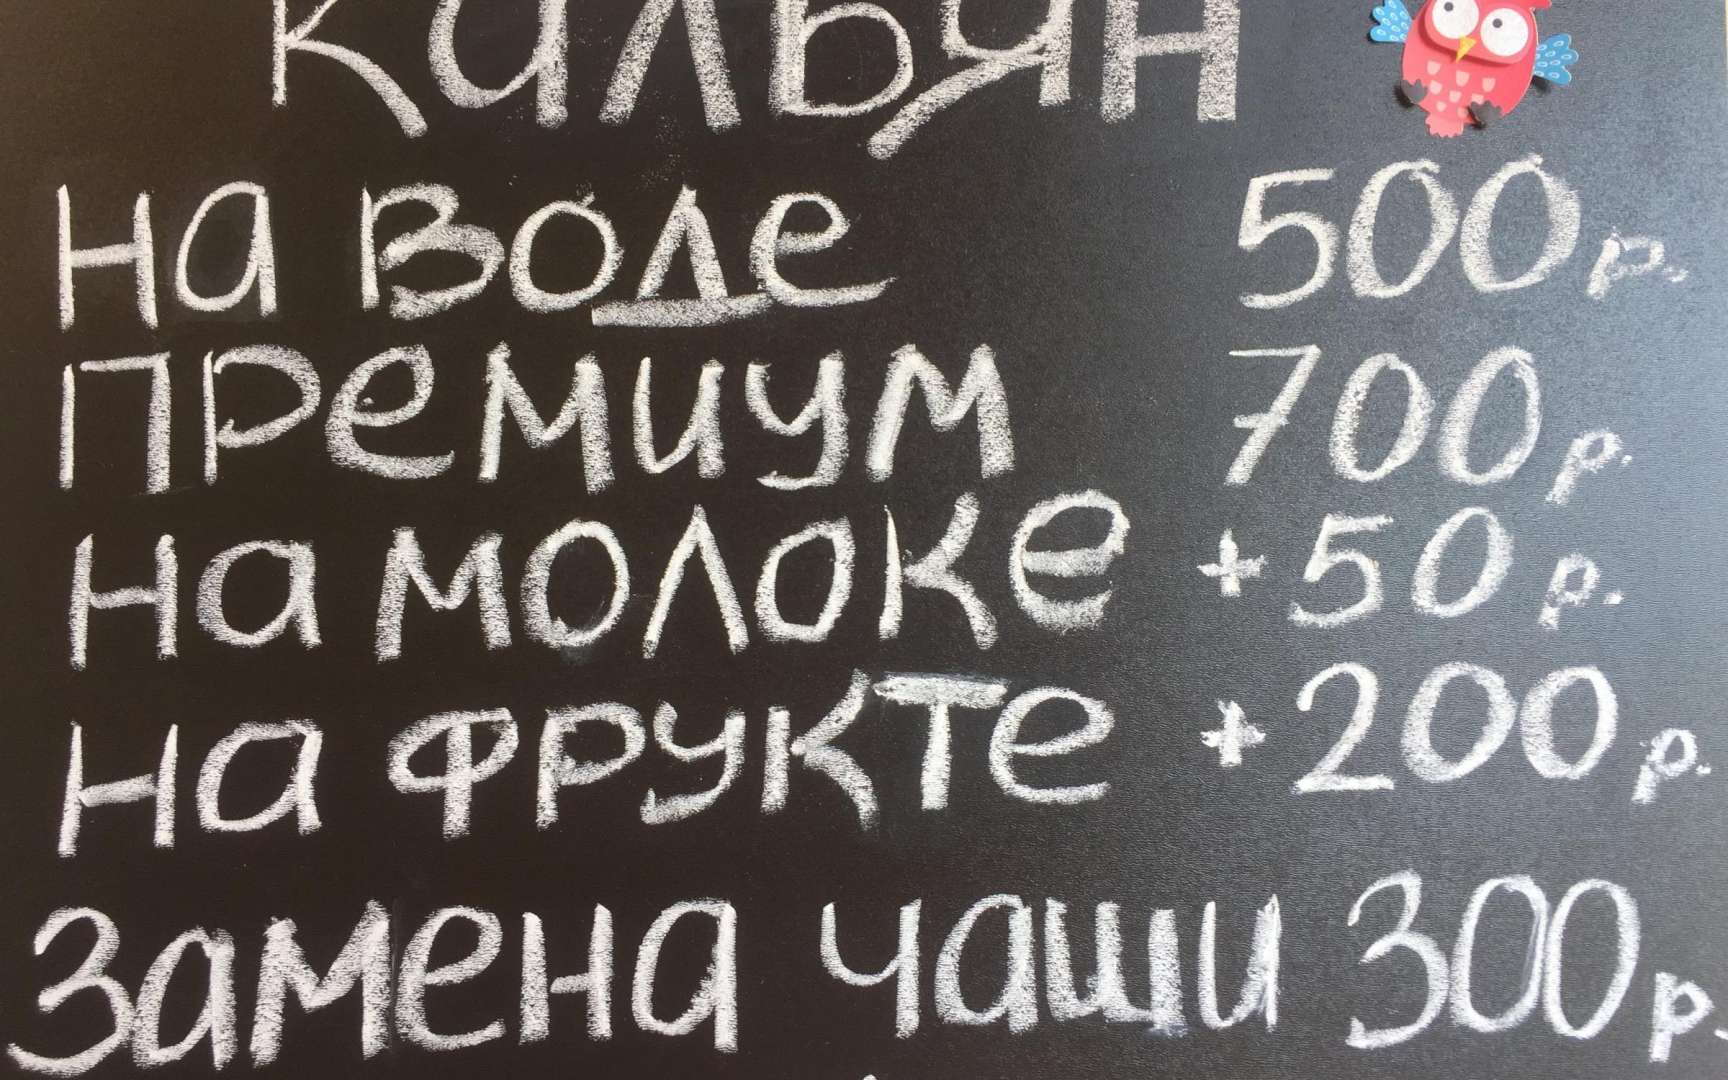 Кальян
на воде 500 р.
Премиум 700 р.
на молоке +50 р.
на фрукте +200 р.
Замена чаши 300 р.